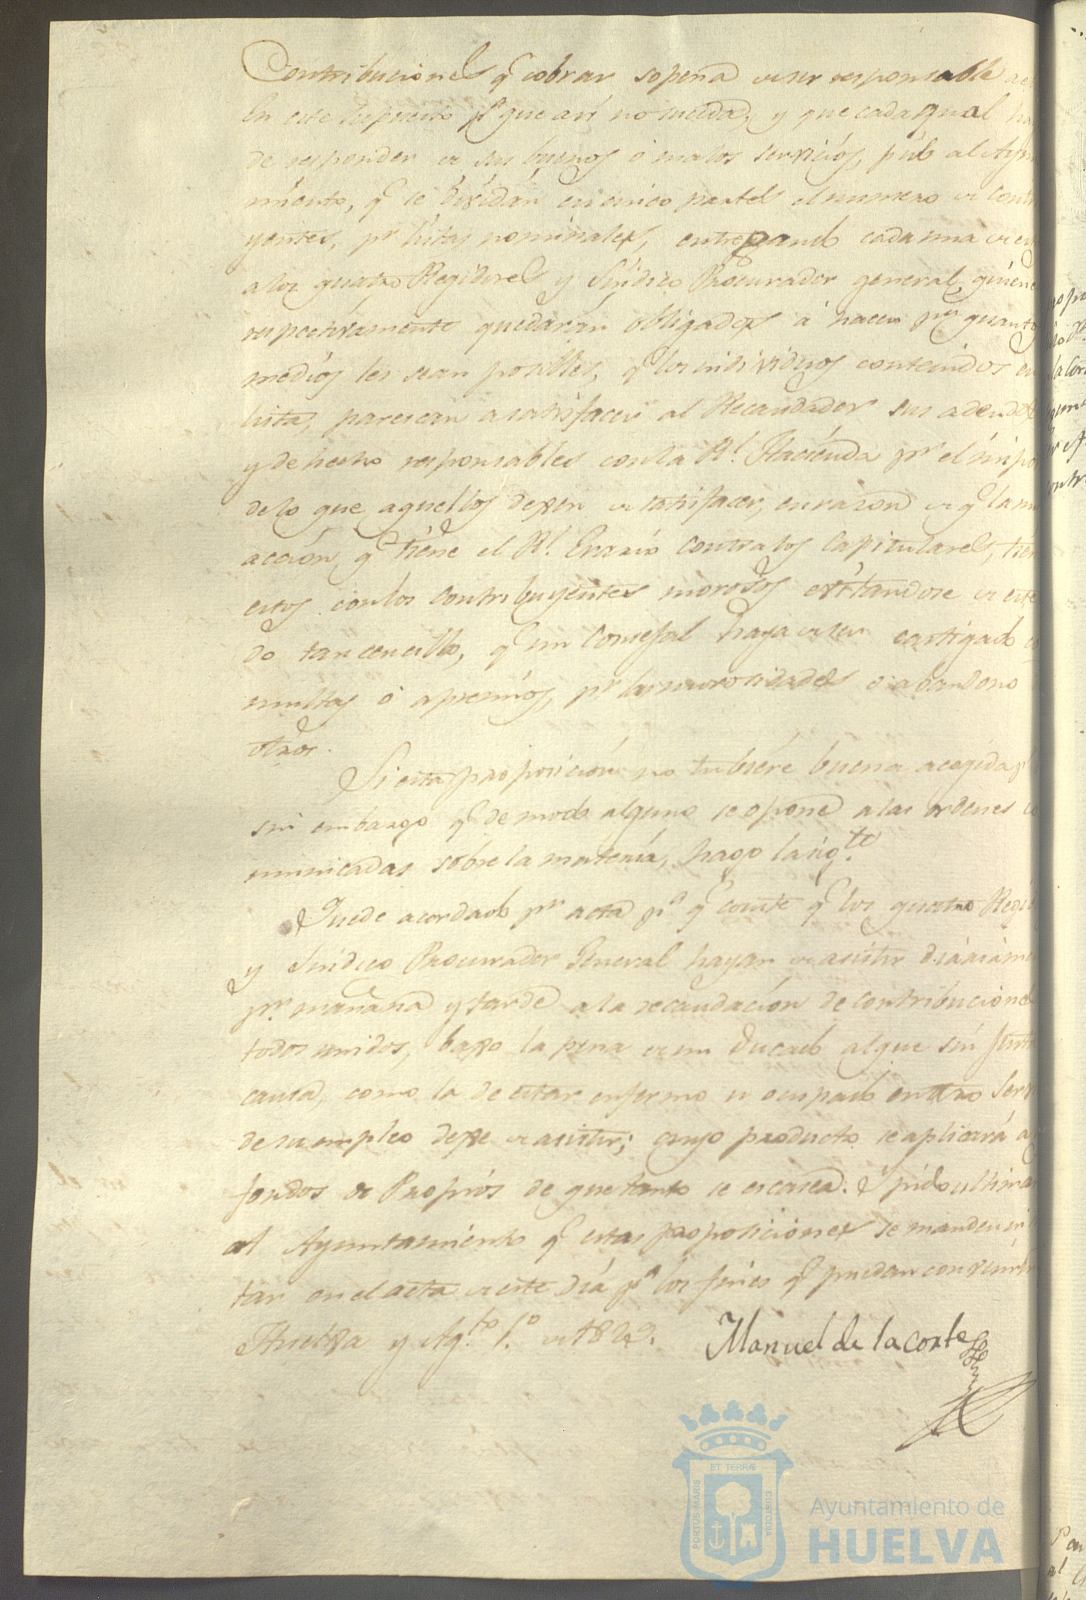 Contribuciones q.e cobrar sopena de ser responsable
En este supuesto p.a que asi no suceda, y que cada qual
de responder de sus buenos ó malos servicios, pido al Ayun
miento, q.e se dividan en cinco partes el numero de Contri
yentes, p.r listas nominales, entregando cada una de
a los quatro Regidores y Sindico Procurador general, quiene
respectivamente quedarán obligados á hacer p.r quantos
medios les sean posibles, q.e los individuos contenidos en
lista, parescan a satisfacer al Recaudador sus adeudos
y de hecho responsables con la R.l Hacienda p.r el impo
de lo que aquellos dexen de satisfacer, en razon de q.e la m
accion q.e tiene el R.l Erario contra los Capitulares, tien
estos con los Contribuyentes morosos evitandose de este
do tan cencillo, q.e un Consejal haya de ser castigado
multas ó apremios, p.r las morosidades ó abandono
otros.
Si esta proposicion no tubiere buena acogida
sin embargo q.e de modo alguno se opone a las ordenes co
municadas sobre la materia, hago la sig.te
Quede acordado p.r acta p.a q.e conste q.e los quatro Regid
y Sindico Procurador General hayan de asistir diariame
p.r mañana y tarde a la recaudacion de Contribuciones
todos unidos, baxo la pena de un Ducado al que sin just
causa, como la de estar enfermo u ocupado en otro Serv
de su empleo dexe de asistir; cuyo producto se aplicará a
fondos de Propios de que tanto se escasea. Y pido ultima
al Ayuntamiento q.e estas proposiciones se manden in
tar en el acta de este dia p.a los fines q.e puedan convenir
Huelva y Ag.to 1.o de 1829.
Manuel de la Corte
PORTUS MARIS
ET TERRÆ
CUSTODIA
Ayuntamiento de
HUELVA